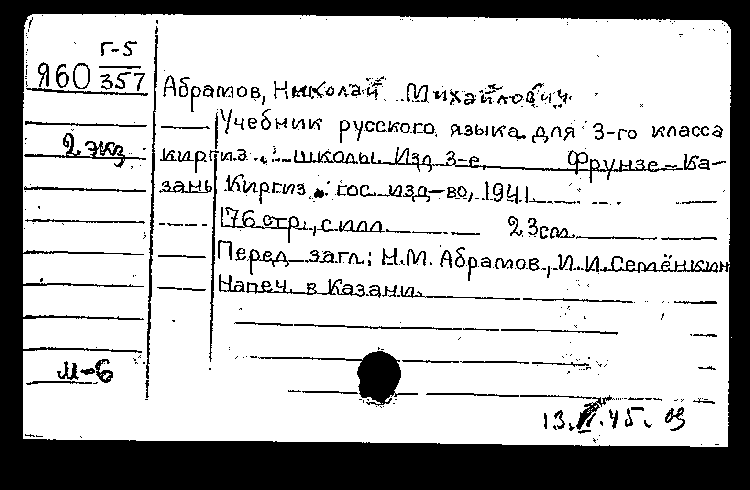 Г-5
Я60 357
Абрамов, Николай Михайлович.
Учебник русского языка для 3-го класса
2 экз
киргиз. школы. Изд 3-е. Фрунзе-Ка-
зань Киргиз. гос. изд-во, 1941
176 стр., с илл. 23 см.
Перед загл.: Н.М. Абрамов, И.И. Семёнкин
Напеч. в Казани.
М-6
13. .45.